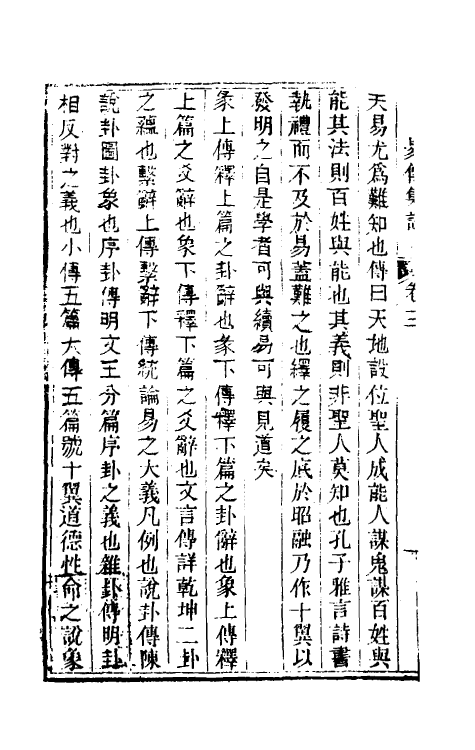 易傳集說 卷三
天易尤爲難知也傳曰天地設位聖人成能人謀鬼謀百姓與
能其法則百姓與能也其義則非聖人莫知也孔子雅言詩書
執禮而不及於易蓋難之也繹之履之底於昭融乃作十翼以
發明之自是學者可與續易可與見道矣
彖上傳釋上篇之卦辭也彖下傳釋下篇之卦辭也象上傳釋
上篇之爻辭也象下傳釋下篇之爻辭也文言傳詳乾坤二卦
之蘊也繫辭上傳繫辭下傳統論易之大義凡例也說卦傳陳
說卦圖卦象也序卦傳明文王分篇序卦之義也雜卦傳明卦
相反對之義也小傳五篇大傳五篇號十翼道德性命之說象